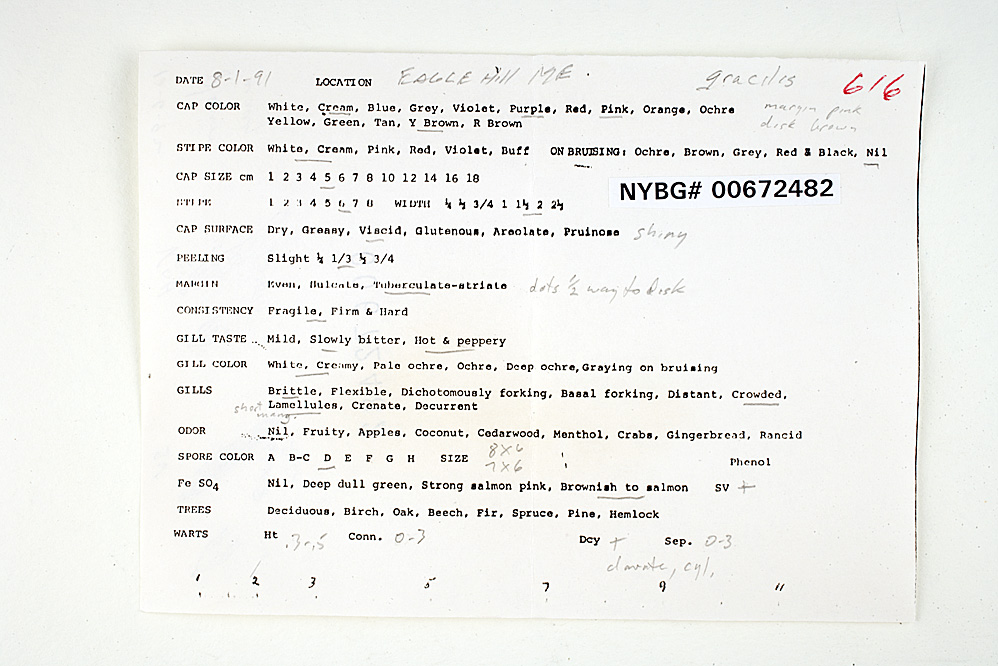 DATE 8-1-91 LOCATION EAGLE Hill ME. gracilis 616
CAP COLOR White, Cream, Blue, Grey, Violet, Purple, Red, Pink, Orange, Ochre margin pink
Yellow, Green, Tan, Y Brown, R Brown disk brown
STIPE COLOR White, Cream, Pink, Red, Violet, Buff ON BRUISING: Ochre, Brown, Grey, Red & Black, Nil
CAP SIZE cm 1 2 3 4 5 6 7 8 10 12 14 16 18
NYBG# 00672482
STIPE 1 2 3 4 5 6 7 8 WIDTH ¼ ½ 3/4 1 1½ 2 2½
CAP SURFACE Dry, Greasy, Viscid, Glutenous, Areolate, Pruinose shiny
PEELING Slight ¼ 1/3 ½ 3/4
MARGIN Even, Sulcate, Tuberculate-striate dots ½ way to disk
CONSISTENCY Fragile, Firm & Hard
GILL TASTE Mild, Slowly bitter, Hot & peppery
GILL COLOR White, Creamy, Pale ochre, Ochre, Deep ochre, Graying on bruising
GILLS Brittle, Flexible, Dichotomously forking, Basal forking, Distant, Crowded,
short Lamellules, Crenate, Decurrent
many.
ODOR Nil, Fruity, Apples, Coconut, Cedarwood, Menthol, Crabs, Gingerbread, Rancid
SPORE COLOR A B-C D E F G H SIZE 8x6
7x6 Phenol
Fe SO4 Nil, Deep dull green, Strong salmon pink, Brownish to salmon SV +
TREES Deciduous, Birch, Oak, Beech, Fir, Spruce, Pine, Hemlock
WARTS Ht .3-.5 Conn. 0-3 Dcy + Sep. 0-3
clavate, cyl.
1 2 3 5 7 9 11